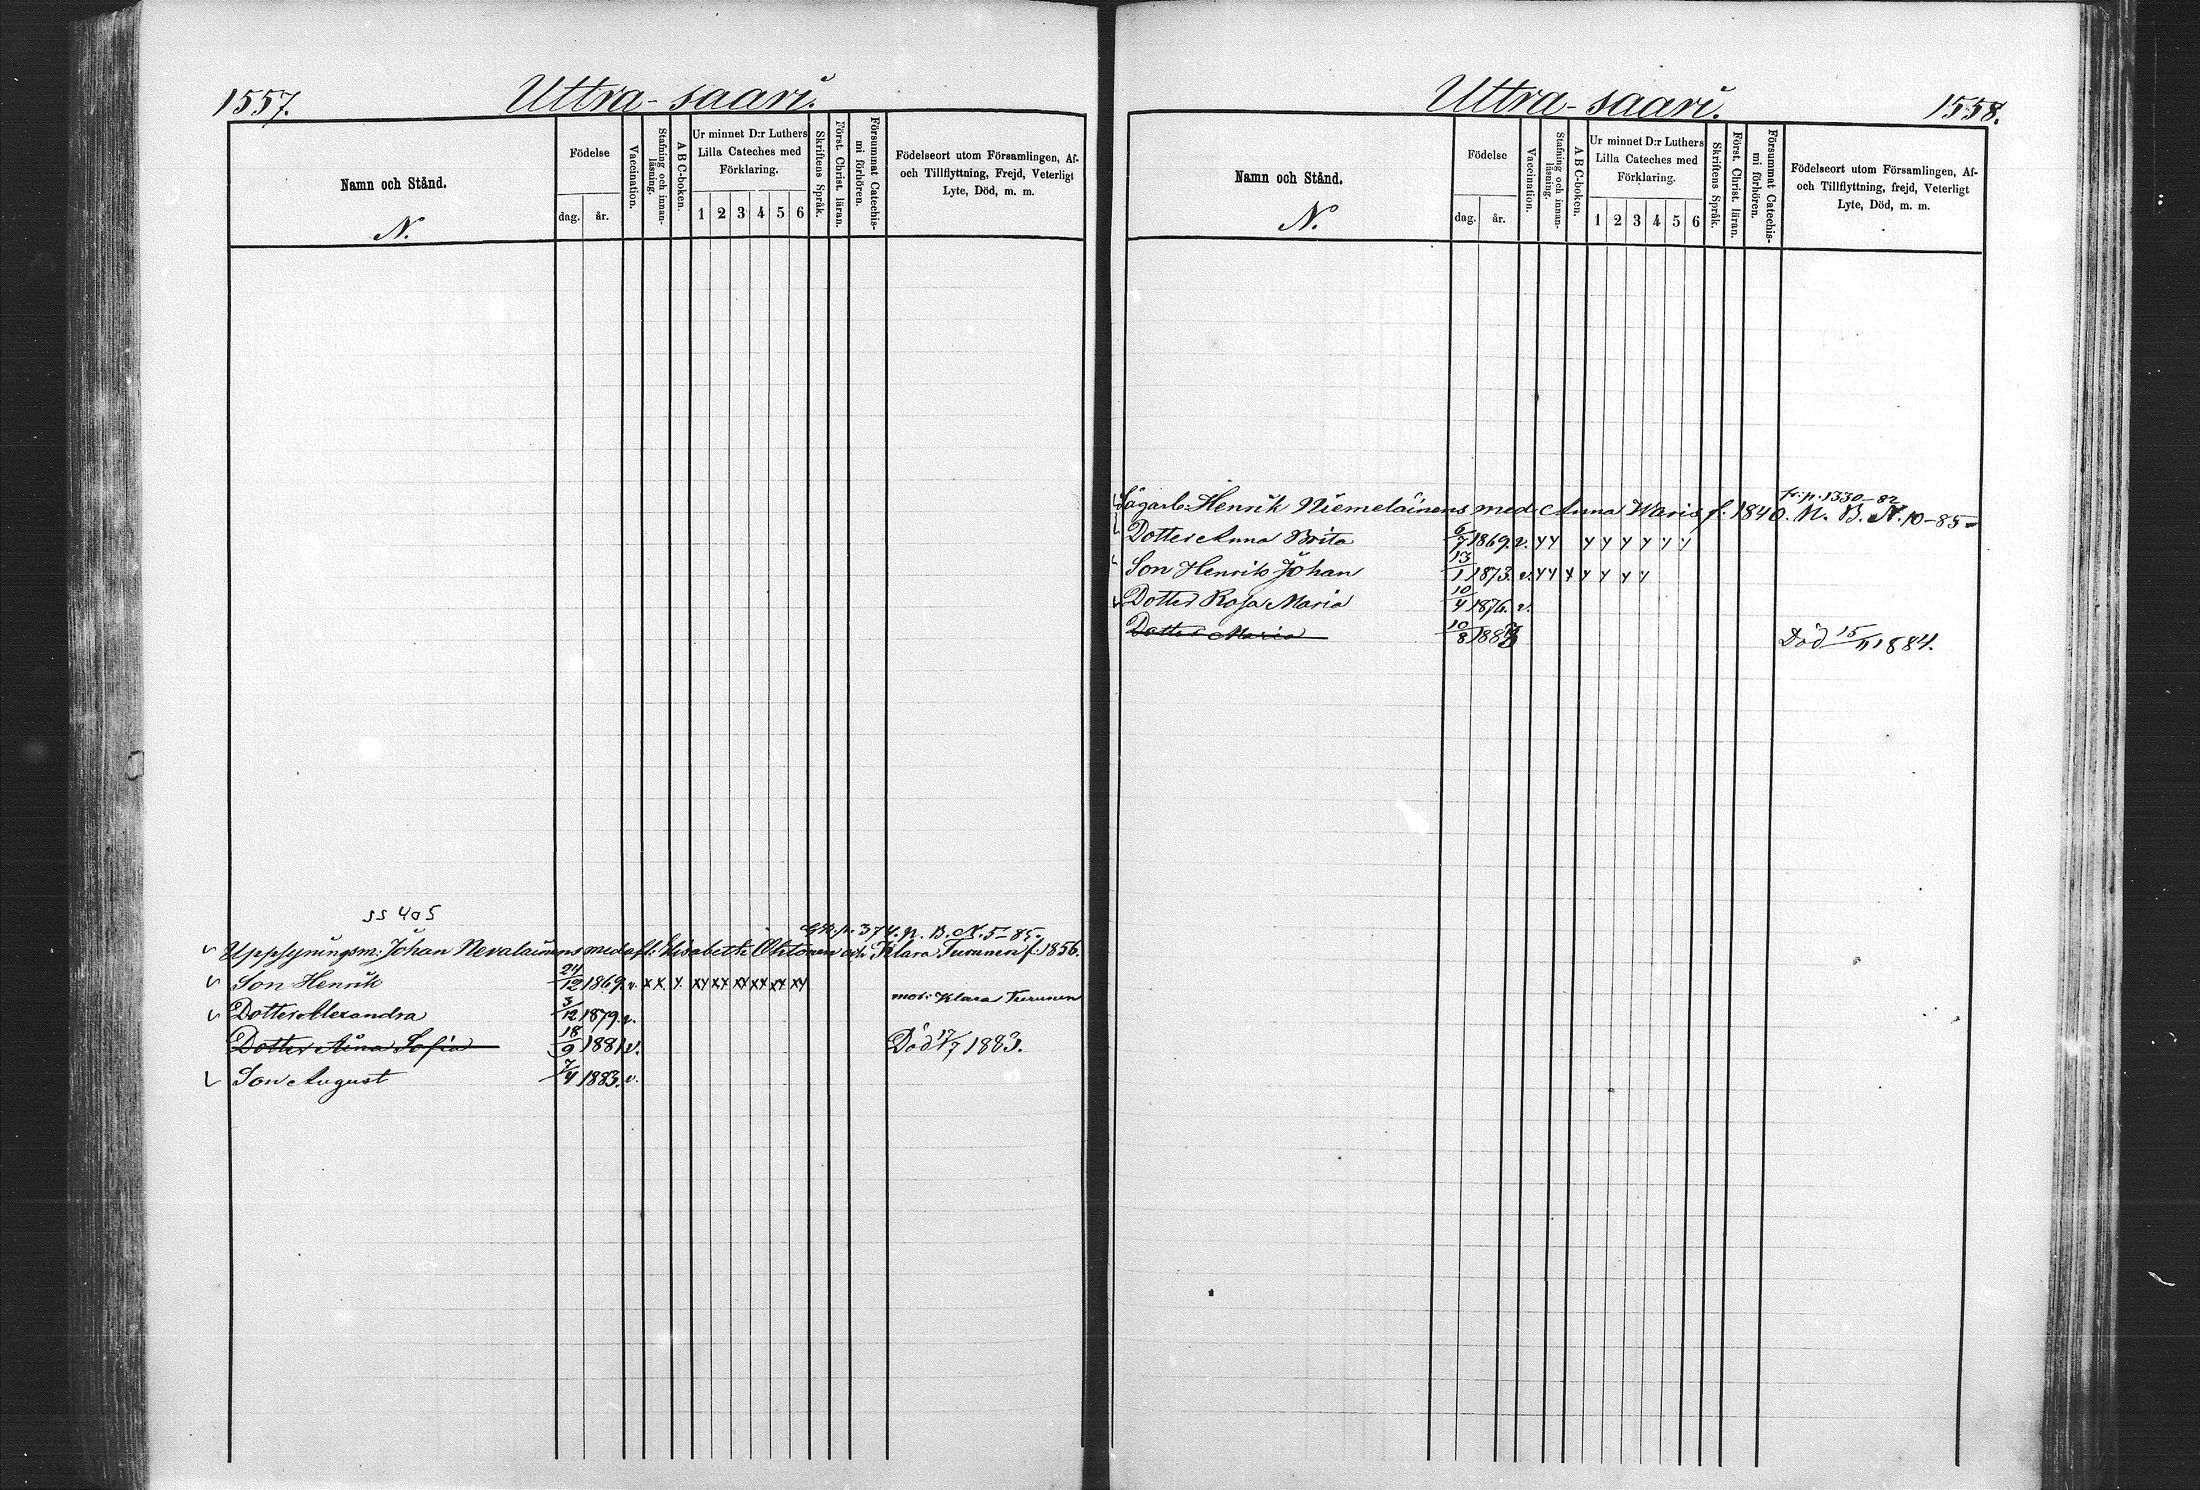 1557.
Uttra-saari.
Namn och Stånd.
N.
Födelse
dag.
år.
Vaccination.
Stafning och innan-
läsning.
A B C-boken.
Ur minnet D:r Luthers
Lilla Cateches med
Förklaring.
1 2 3 4 5 6
Skriftens Språk.
Först. Christ. läran.
Försummat Catechis-
mi förhören.
Födelseort utom Församlingen, Af-
och Tillflyttning, Frejd, Veterligt
Lyte, Död, m. m.
ss 405
p. 374. N. B. N. 5-85.
Uppsyningsm: Johan Nevalainens med afl: Elisabeth Ohtonen och Klara Turunen f. 1856.
Son Henrik 24/12 1869. v. x x y xy xy xy xy xy xy
mod: Klara Turunen
Dotter Alexandra 3/12 1879. v.
Dotter Aina Sofia 18/9 1881 v. Död 17/7 1883.
Son August 7/4 1883. v.
Uttra-saari.
1558.
Namn och Stånd.
N.
Födelse
dag.
år.
Vaccination.
Stafning och innan-
läsning.
A B C-boken.
Ur minnet D:r Luthers
Lilla Cateches med
Förklaring.
1 2 3 4 5 6
Skriftens Språk.
Först. Christ. läran.
Försummat Catechis-
mi förhören.
Födelseort utom Församlingen, Af-
och Tillflyttning, frejd, Veterligt
Lyte, Död, m. m.
fr. p. 1330-82
Sågarb: Henrik Niemeläinens med Anna Waris f. 1840. N. B. N. 10-85
Dotter Anna Brita 6/7 1869. v. y y y y y y y y
Son Henrik Johan 13/1 1873. v. y y y y y y y
Dotter Rosa Maria 10/4 1876. v.
Dotter Maria 10/8 1883 Död 15/11 1884.